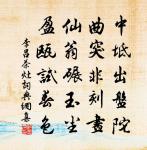 中坻出盤陀
曲突非刻畫
仙翁碾玉塵
盈甌試春色
李昌茶灶詞典網集